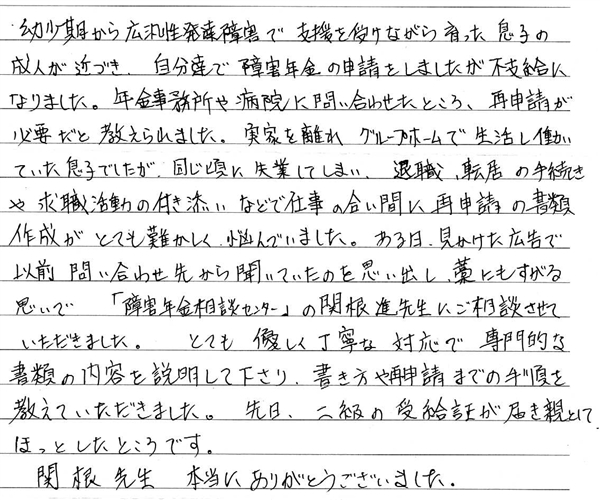 幼少期から広汎性発達障害で支援を受けながら育った息子の
成人が近づき、自分達で障害年金の申請をしましたが不支給に
なりました。年金事務所や病院に問い合わせたところ、再申請が
必要だと教えられました。実家を離れグループホームで生活し働い
ていた息子でしたが、同じ頃に失業してしまい、退職、転居の手続き
や求職活動の付き添いなどで仕事の合い間に再申請の書類
作成がとても難かしく悩んでいました。ある日、見かけた広告で
以前問い合わせ先から聞いていたのを思い出し、藁にもすがる
思いで「障害年金相談センター」の関根進先生にご相談させて
いただきました。とても優しく丁寧な対応で専門的な
書類の内容を説明して下さり、書き方や再申請までの手順を
教えていただきました。先日、二級の受給証が届き親として
ほっとしたところです。
関根先生 本当にありがとうございました。